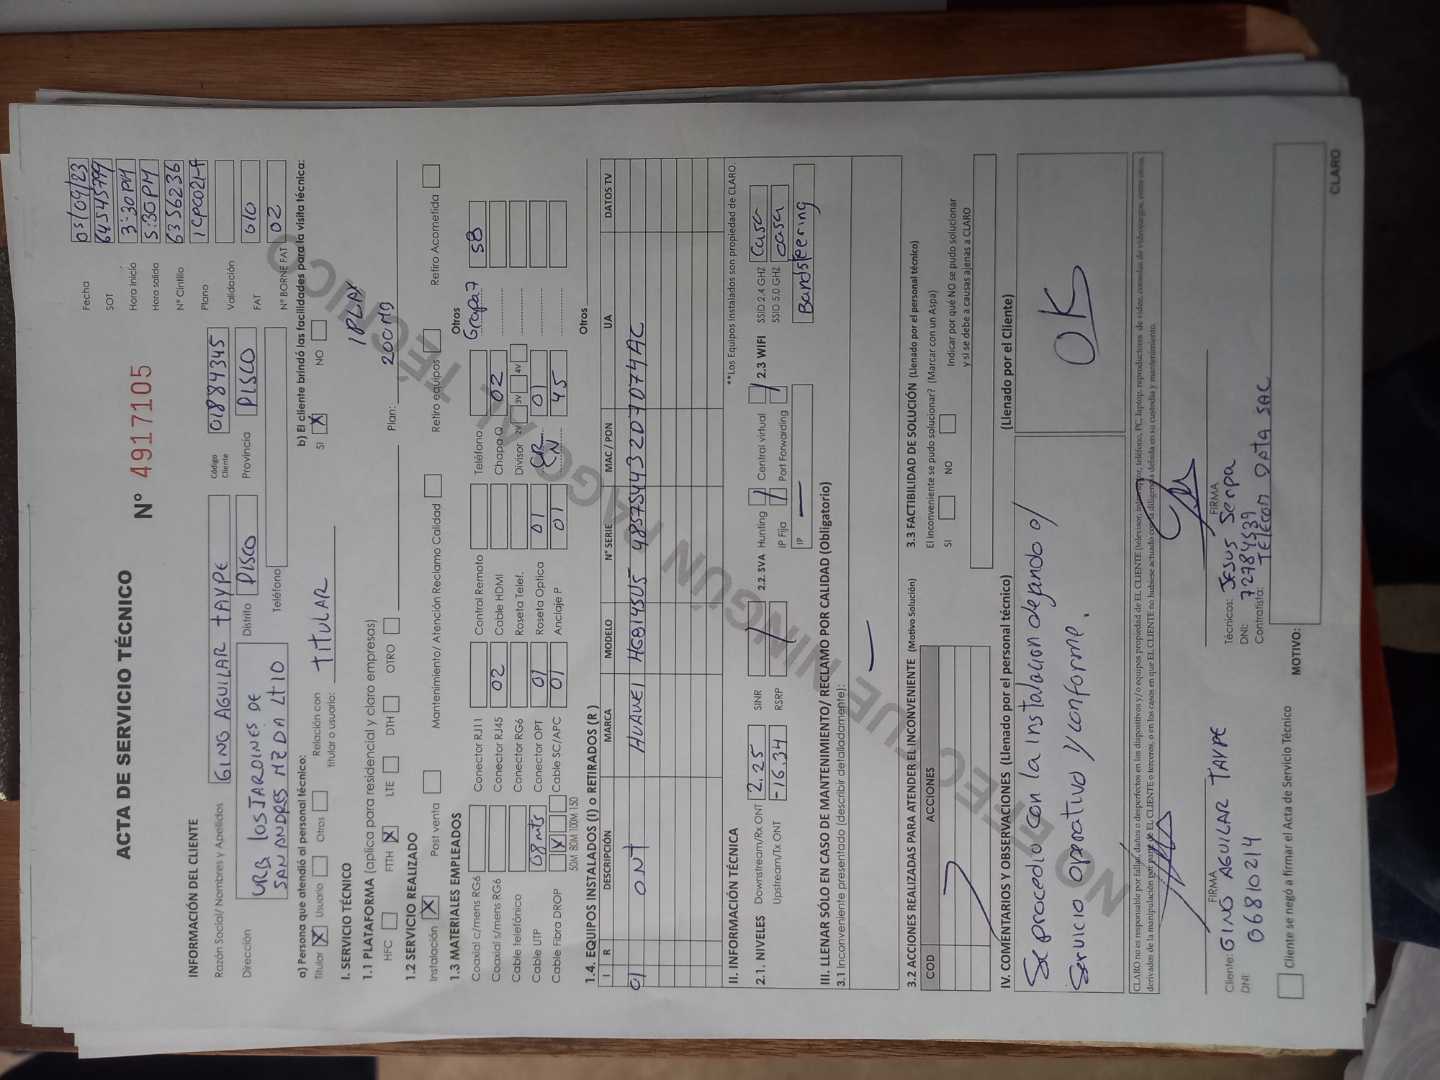 ACTA DE SERVICIO TÉCNICO
N° 4917105
Fecha 05/09/23
SOT 64545799
Hora Inicio 3:30 PM
Hora salida 5:30 PM
N° Cintillo 6356236
Plano
Validación
FAT 010
N° BORNE FAT 02
INFORMACIÓN DEL CLIENTE
Razón Social/ Nombres y Apellidos GINO AGUILAR TAYPE
Código Cliente 01884345
Dirección URB LOS JARDINES DE
SAN ANDRES MZ DA LT 10
Distrito PISCO
Provincia PISCO
Teléfono
a) Persona que atendió al personal técnico:
Titular X Usuario Otros
Relación con titular o usuario: TITULAR
b) El cliente brindó las facilidades para la visita técnica:
SI X NO
I. SERVICIO TÉCNICO
1.1 PLATAFORMA (aplica para residencial y claro empresas)
HFC FTTH X LTE DTH OTRO
Plan: 1PLAY
200MB
1.2 SERVICIO REALIZADO
Instalación X Post venta Mantenimiento/ Atención Reclamo Calidad Retiro equipos Retiro Acometida
1.3 MATERIALES EMPLEADOS
Otros
Coaxial c/mens RG6 Conector RJ11 Control Remoto Teléfono Grapa7 58
Coaxial s/mens RG6 Conector RJ45 02 Cable HDMI Chapa Q 02
Cable telefónico Conector RG6 Roseta Telef. Divisor 2V 3V 4V
Cable UTP 08mts Conector OPT 01 Roseta Optica 01 CR 01
Cable Fibra DROP X Cable SC/APC 01 Anclaje P 01 CN 45
50M 80M 100M 150
1.4. EQUIPOS INSTALADOS (I) o RETIRADOS (R )
Otros
I R DESCRIPCIÓN MARCA MODELO N° SERIE MAC / PON UA DATOS TV
01 ONT HUAWEI HG8145U5 48575443207074AC
**Los Equipos Instalados son propiedad de CLARO.
II. INFORMACIÓN TÉCNICA
2.1. NIVELES Downstream/Rx ONT 2.25 SINR 2.2. SVA Hunting Central virtual 2.3 WIFI SSID 2.4 GHZ Casa
Upstream/Tx ONT -16.34 RSRP IP Fija Port Forwarding SSID 5.0 GHZ casa
IP
Bandsteering
III. LLENAR SÓLO EN CASO DE MANTENIMIENTO/ RECLAMO POR CALIDAD (Obligatorio)
3.1 Inconveniente presentado (describir detalladamente):
3.2 ACCIONES REALIZADAS PARA ATENDER EL INCONVENIENTE (Motivo Solución)
COD ACCIONES
3.3 FACTIBILIDAD DE SOLUCIÓN (Llenado por el personal técnico)
El inconveniente se pudo solucionar? (Marcar con un Aspa)
SI NO
Indicar por qué NO se pudo solucionar
y si se debe a causas ajenas a CLARO
IV. COMENTARIOS Y OBSERVACIONES (Llenado por el personal técnico)
(Llenado por el Cliente)
Se procedio con la instalacion dejando
Servicio operativo y conforme.
OK
CLARO no es responsable por fallas, daños o desperfectos en los dispositivos y/o equipos propiedad de EL CLIENTE
NO EFECTUE NINGÚN PAGO AL TÉCNICO
FIRMA
Cliente: GINO AGUILAR TAYPE
DNI: 06810214
FIRMA
Técnicos: JESUS Serpa
DNI: 72784539
Contratista: TELECOM DATA SAC
Cliente se negó a firmar el Acta de Servicio Técnico
MOTIVO:
CLARO